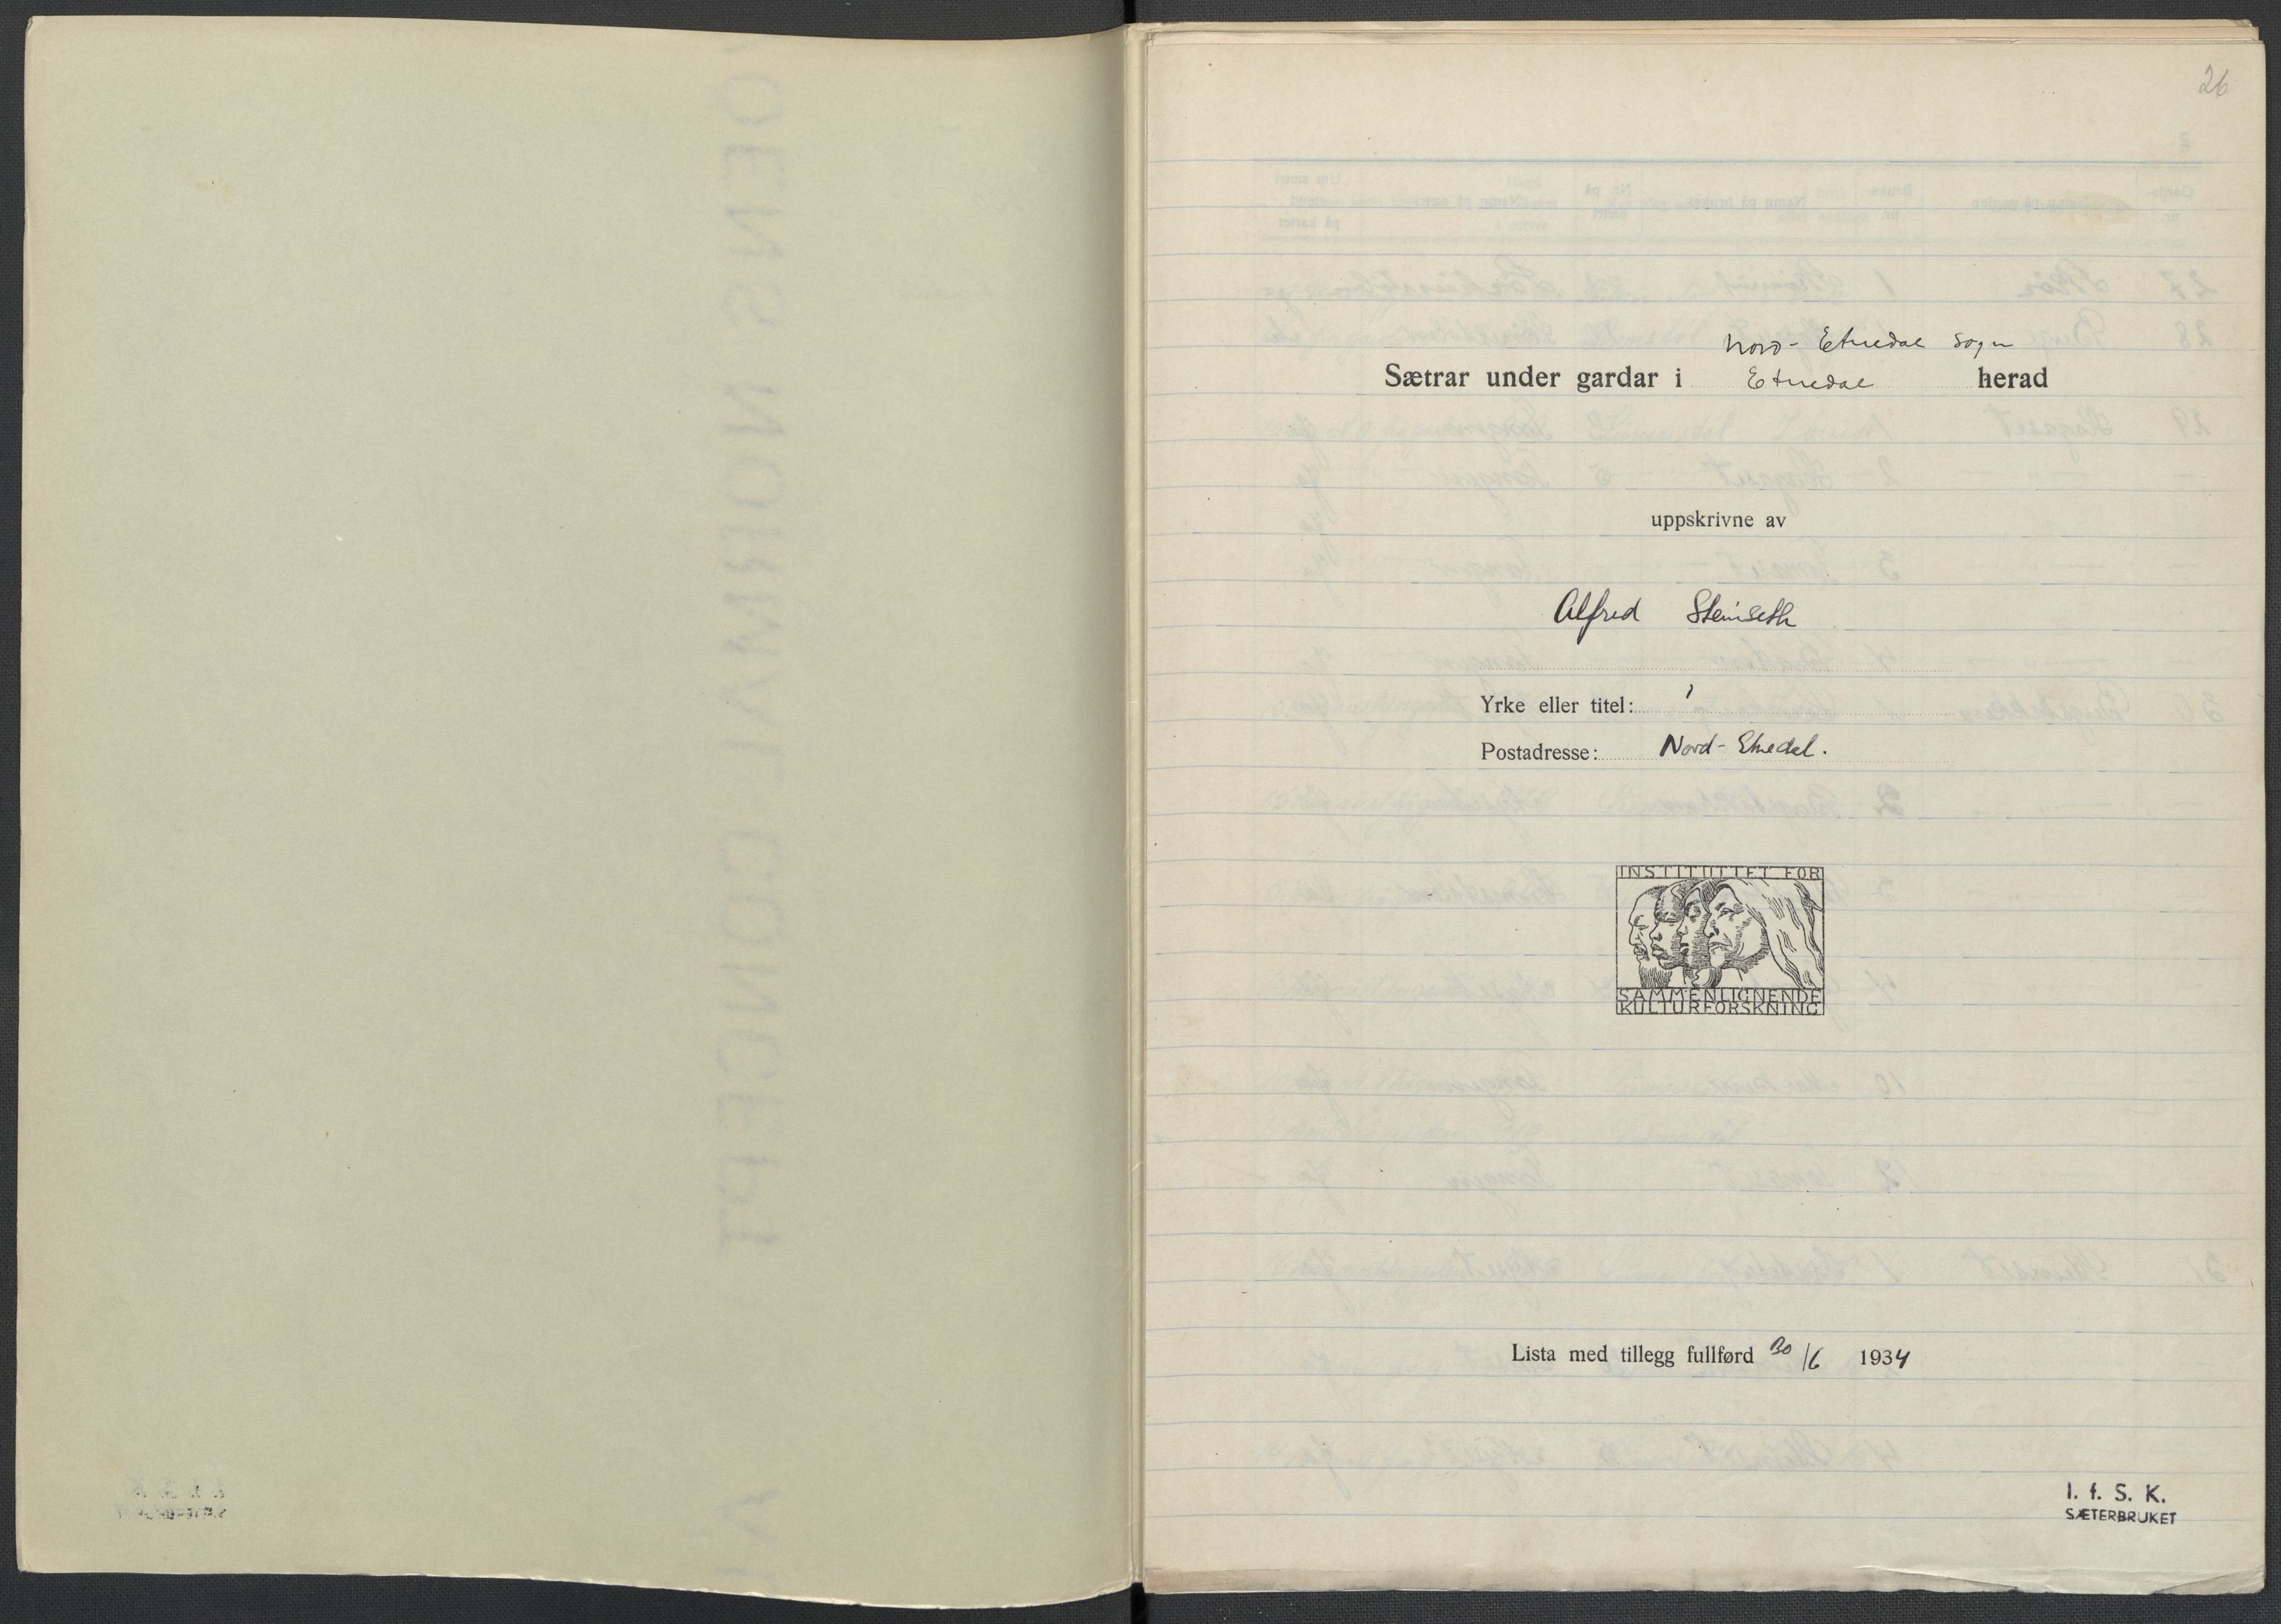 26
Nord-Etnedal sogn
Sætrar under gardar i Etnedal herad
uppskrivne av
Alfred Steinseth
Yrke eller titel:
Postadresse: Nord-Etnedal.
INSTITUTTET FOR
SAMMENLIGNENDE
KULTURFORSKNING
Lista med tillegg fullførd 30/6 1934
I. f. S. K.
SÆTERBRUKET